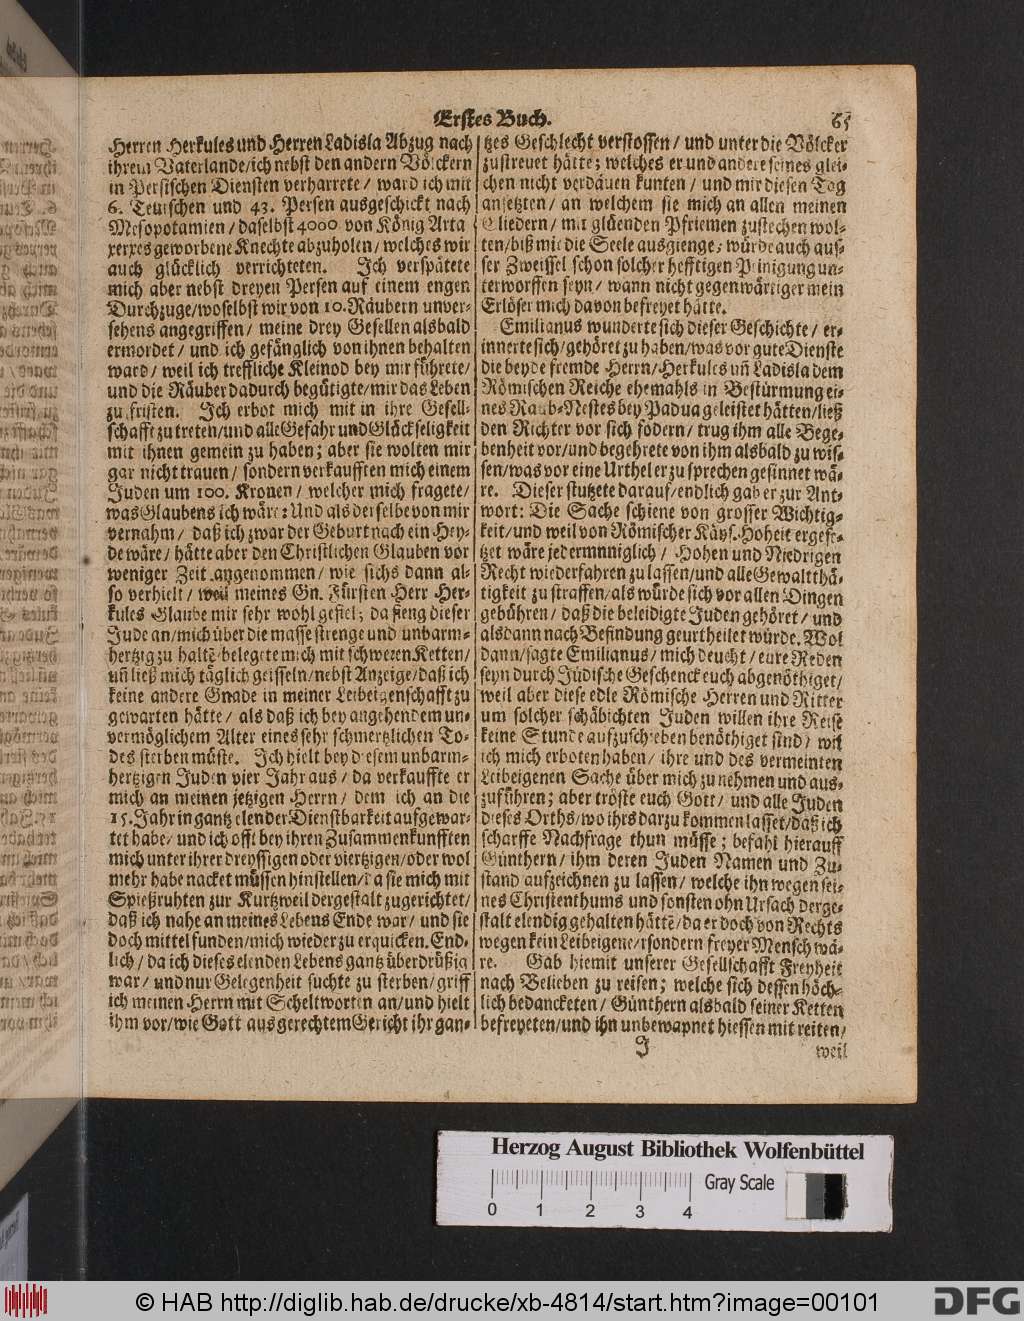 Erstes Buch.
65
Herren Herkules und Herren Ladisla Abzug nach
ihrem Vaterlande/ich nebst den andern Völckern
in Persischen Diensten verharrete/ ward ich mit
6. Teutschen und 43. Persen ausgeschickt nach
Mesopotamien/daselbst 4000 von König Arta
xerxes geworbene Knechte abzuholen/welches wir
auch glücklich verrichteten. Ich verspätete
mich aber nebst dreyen Persen auf einem engen
Durchzuge/woselbst wir von 10. Räubern unver-
sehens angegriffen/ meine drey Gesellen alsbald
ermordet/ und ich gefänglich von ihnen behalten
ward/ weil ich treffliche Kleinod bey mir führete/
und die Räuber dadurch begütigte/mir das Leben
zu fristen. Ich erbot mich mit in ihre Gesell-
schafft zu treten/und alle Gefahr und Glückseligkeit
mit ihnen gemein zu haben; aber sie wolten mir
gar nicht trauen/ sondern verkaufften mich einem
Juden um 100. Kronen/ welcher mich fragete/
was Glaubens ich wäre: Und als derselbe von mir
vernahm/ daß ich zwar der Geburt nach ein Hey-
de wäre/ hätte aber den Christlichen Glauben vor
weniger Zeit angenommen/ wie sichs dann al-
so verhielt/ weil meines Gn. Fürsten Herr Her-
kules Glaube mir sehr wohl gefiel; da fieng dieser
Jude an/mich über die masse strenge und unbarm-
hertzig zu haltē/belegete mich mit schweren Ketten/
uñ ließ mich täglich geisseln/nebst Anzeige/daß ich
keine andere Gnade in meiner Leibeigenschafft zu
gewarten hätte/ als daß ich bey angehendem un-
vermöglichem Alter eines sehr schmertzlichen To-
des sterben müste. Ich hielt bey diesem unbarm-
hertzigen Juden vier Jahr aus/ da verkauffte er
mich an meinen jetzigen Herrn/ dem ich an die
15. Jahr in gantz elender Dienstbarkeit aufgewar-
tet habe/ und ich offt bey ihren Zusammenkunfften
mich unter ihrer dreyssigen oder viertzigen/oder wol
mehr habe nacket müssen hinstellen/da sie mich mit
Spießruhten zur Kurtzweil dergestalt zugerichtet/
daß ich nahe an meines Lebens Ende war/ und sie
doch mittel funden/mich wieder zu erquicken. End-
lich/ da ich dieses elenden Lebens gantz überdrüßig
war/ und nur Gelegenheit suchte zu sterben/griff
ich meinen Herrn mit Scheltworten an/und hielt
ihm vor/wie Gott aus gerechtem Gericht ihr gan-
tzes Geschlecht verstossen/ und unter die Völcker
zustreuet hätte; welches er und andere seines glei-
chen nicht verdäuen kunten/ und mir diesen Tag
ansetzten/ an welchem sie mich an allen meinen
Gliedern/ mit glüenden Pfriemen zustechen wol-
ten/biß mir die Seele ausgienge; würde auch aus-
ser Zweiffel schon solcher hefftigen Peinigung un-
terworffen seyn/ wann nicht gegenwärtiger mein
Erlöser mich davon befreyet hätte.
Emilianus wunderte sich dieser Geschichte/ er-
innerte sich/gehöret zu haben/was vor gute Dienste
die beyde fremde Herrn/Herkules uñ Ladisla dem
Römischen Reiche ehemahls in Bestürmung ei-
nes Raub-Nestes bey Padua geleistet hätten/ließ
den Richter vor sich fodern/ trug ihm alle Bege-
benheit vor/und begehrete von ihm alsbald zu wis-
sen/was vor eine Urthel er zu sprechen gesinnet wä-
re. Dieser stutzete darauf/endlich gab er zur Ant-
wort: Die Sache schiene von grosser Wichtig-
keit/und weil von Römischer Käys. Hoheit ergese-
tzet wäre jedermnniglich/ Hohen und Niedrigen
Recht wiederfahren zu lassen/und alle Gewaltthä-
tigkeit zu straffen/als würde sich vor allen Dingen
gebühren/ daß die beleidigte Juden gehöret/ und
alsdann nach Befindung geurtheilet würde. Wol
dann/sagte Emilianus/mich deucht/eure Reden
seyn durch Jüdische Geschenck euch abgenöthiget/
weil aber diese edle Römische Herren und Ritter
um solcher schäbichten Juden willen ihre Reise
keine Stunde aufzuschieben benöthiget sind/ wil
ich mich erboten haben/ ihre und des vermeinten
Leibeigenen Sache über mich zu nehmen und aus-
zuführen; aber tröste euch Gott/ und alle Juden
dieses Orths/wo ihrs darzu kommen lasset/daß ich
scharffe Nachfrage thun müsse; befahl hierauff
Günthern/ ihm deren Juden Namen und Zu-
stand aufzeichnen zu lassen/ welche ihn wegen sei-
nes Christenthums und sonsten ohn Ursach derge-
stalt elendig gehalten hättē/da er doch von Rechts
wegen kein Leibeigener/sondern freyer Mensch wä-
re. Gab hiemit unserer Gesellschafft Freyheit
nach Belieben zu reisen; welche sich dessen höch-
lich bedancketen/ Günthern alsbald seiner Ketten
befreyeten/und ihn unbewapnet hiessen mit reiten/
J
weil
Herzog August Bibliothek Wolfenbüttel
Gray Scale
0 1 2 3 4
© HAB http://diglib.hab.de/drucke/xb-4814/start.htm?image=00101
DFG